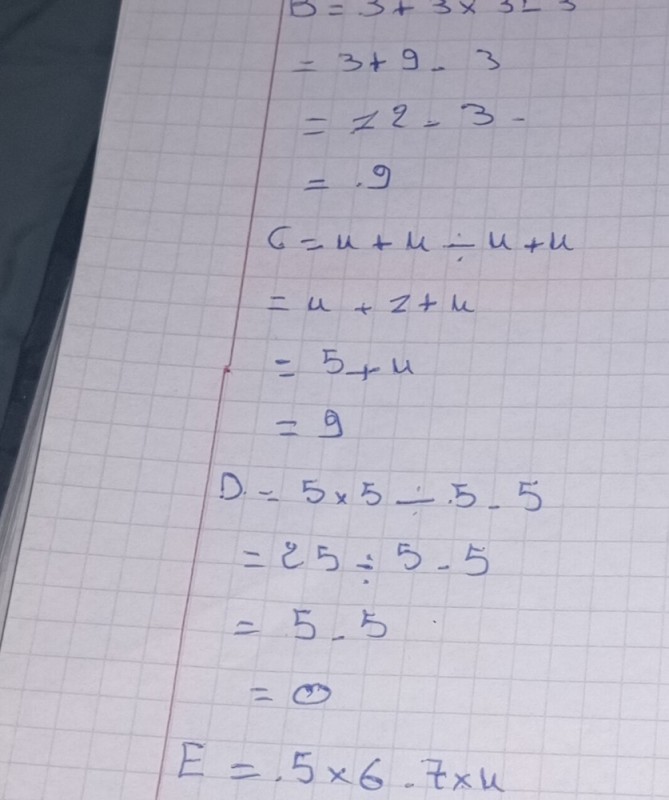 B = 3 + 3 × 3 - 3
= 3 + 9 - 3
= 12 - 3 -
= 9
C = 4 + 4 ÷ 4 + 4
= 4 + 1 + 4
= 5 + 4
= 9
D = 5 × 5 ÷ 5 - 5
= 25 ÷ 5 - 5
= 5 - 5
= 0
E = 5 × 6 - 7 × 4